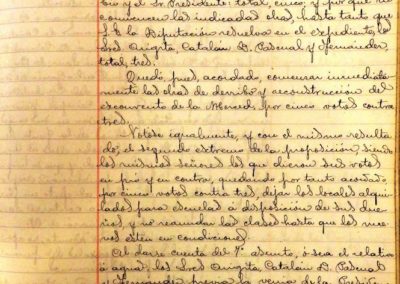 Bru y el Sr. Presidente: total, cinco; y por que no
comiencen las indicadas obras, hasta tanto que
S. E. la Diputación resuelva en el expediente, los
Sres. Angita, Catalán D. Pascual y Fernández,
total, tres.
Quedó, pues, acordado, comenzar inmediata-
mente las obras de derribo y reconstrucción del
exconvento de la Merced, por cinco votos contra
tres.
Votose igualmente, y con el mismo resulta-
do, el segundo extremo de la proposición, siendo
los mismos señores los que dieron sus votos
en pró y en contra, quedando por tanto acordado
por cinco votos contra tres, dejar los locales alqui-
lados para escuelas á disposición de sus due-
ños, y no reanudar las clases hasta que los nue-
vos estén en condiciones.
Al darse cuenta del 7º asunto, ó sea el relativo
á aguas, los Sres. Angita, Catalán D. Pascual
y Fernández, previa la venia de la Presiden-